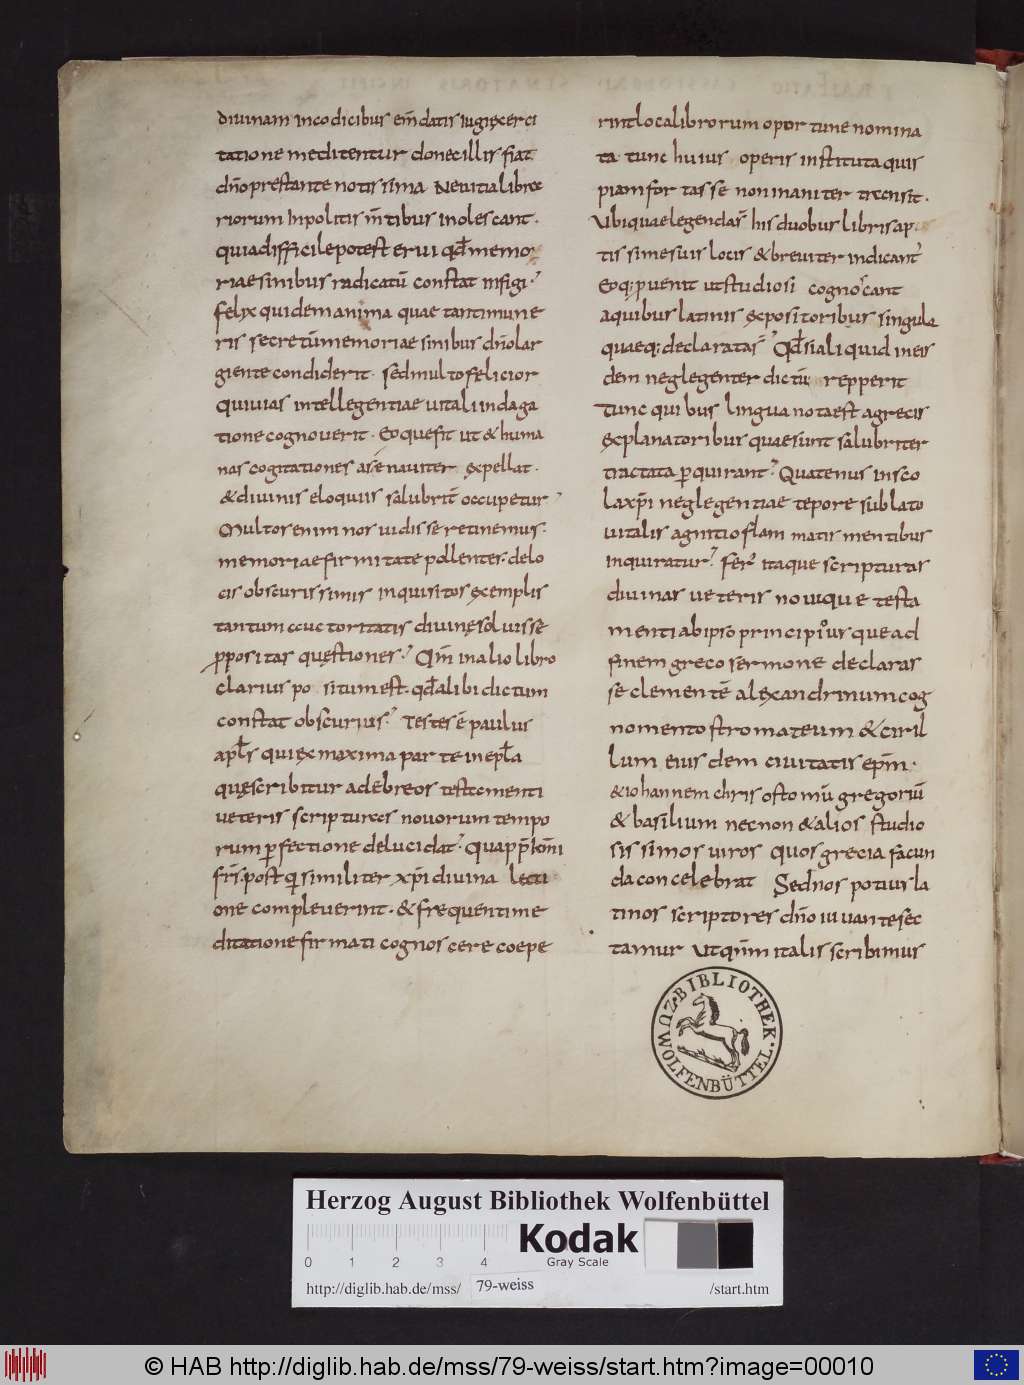 divinam incodicibus em̄datis iugięxerci
tatione meditentur donecillis fiat
dn̄oprestante notissima Neuitia libra
riorum Inpolitis m̄tibus inolescant.
quiadifficilepotest erui qd̄memo
riaesinibus radicatū constat infigi.
felix quidem anima quae tantimune
ris secretūmemoriae sinibus dn̄olar
giente condiderit. sedmultofelicior
Quiuias intellegentiae uitali indaga
tione cognouerit. Eoquefit ut & huma
nas cogitationes asē nauiter ęxpellat.
&diuinis eloquiis salubrit̄ occupetur
Multos enim nos uidisse retinemus.
memoriaefirmitate pollentes. delo
cis obscurissimis inquisitos ęxemplis
tantum auctoritatis diuinę soluisse
ppositas quęstiones. Qm̄ inalio libro
clarius po situmest. qd̄alibi dictum
constat obscurius. Testes ē paulus
apl̄s quięx maxima parte inepl̄a
quęscribitur adebreos testamenti
ueteris scripturas nouorum tempo
rum pfectione delucidat. Quapp̄t
frs̄. post qi similiter xp̄i diuina lecti
one compleuerint. &frequentime
ditatione firmati cognoscere coepe
rintlocalibrorum oportune nomina
ta tunc huius operis instituta quis
piam fortasse non inaniter recensit.
Ubiquaelegendas̄ his duobus librisap
tis simesuis locis &breuiter indicant
Eoq; puenit utstudiosi cognoscant
aquibus latinis ęxpositoribus singula
quaeq; declaratas̄ Qd̄sialiquid ineis
dem neglegenter dictū repperit
Tunc quibus lingua notaest agrecis
ęxplanatoribus quaesunt salubriter
tractata pquirant Quatenus insco
laxp̄i neglegentiae tepore sublato
uitalis agnitio flammatis mentibus
inquiratur Fer itaque scripturas
diuinas ueteris nouique testa
mentiabipso principiousquead
finem greco sermone declaras
se clementē alęxandrinum cog
nomento stromateum & ciril
lum eius dem ciuitatis epm̄.
&iohannem chrisostomū gregoriū
& basilium necnon &alios studio
sissimos uiros quos grecia facun
da concelebrat Sednos potius la
tinos scriptores dn̄o iuuantesec
tamur Utqm̄ italis scribimus
BIBLIOTHEK. ZU WOLFENBÜTTEL.
Herzog August Bibliothek Wolfenbüttel
0 1 2 3 4
Kodak
Gray Scale
http://diglib.hab.de/mss/ 79-weiss /start.htm
© HAB http://diglib.hab.de/mss/79-weiss/start.htm?image=00010